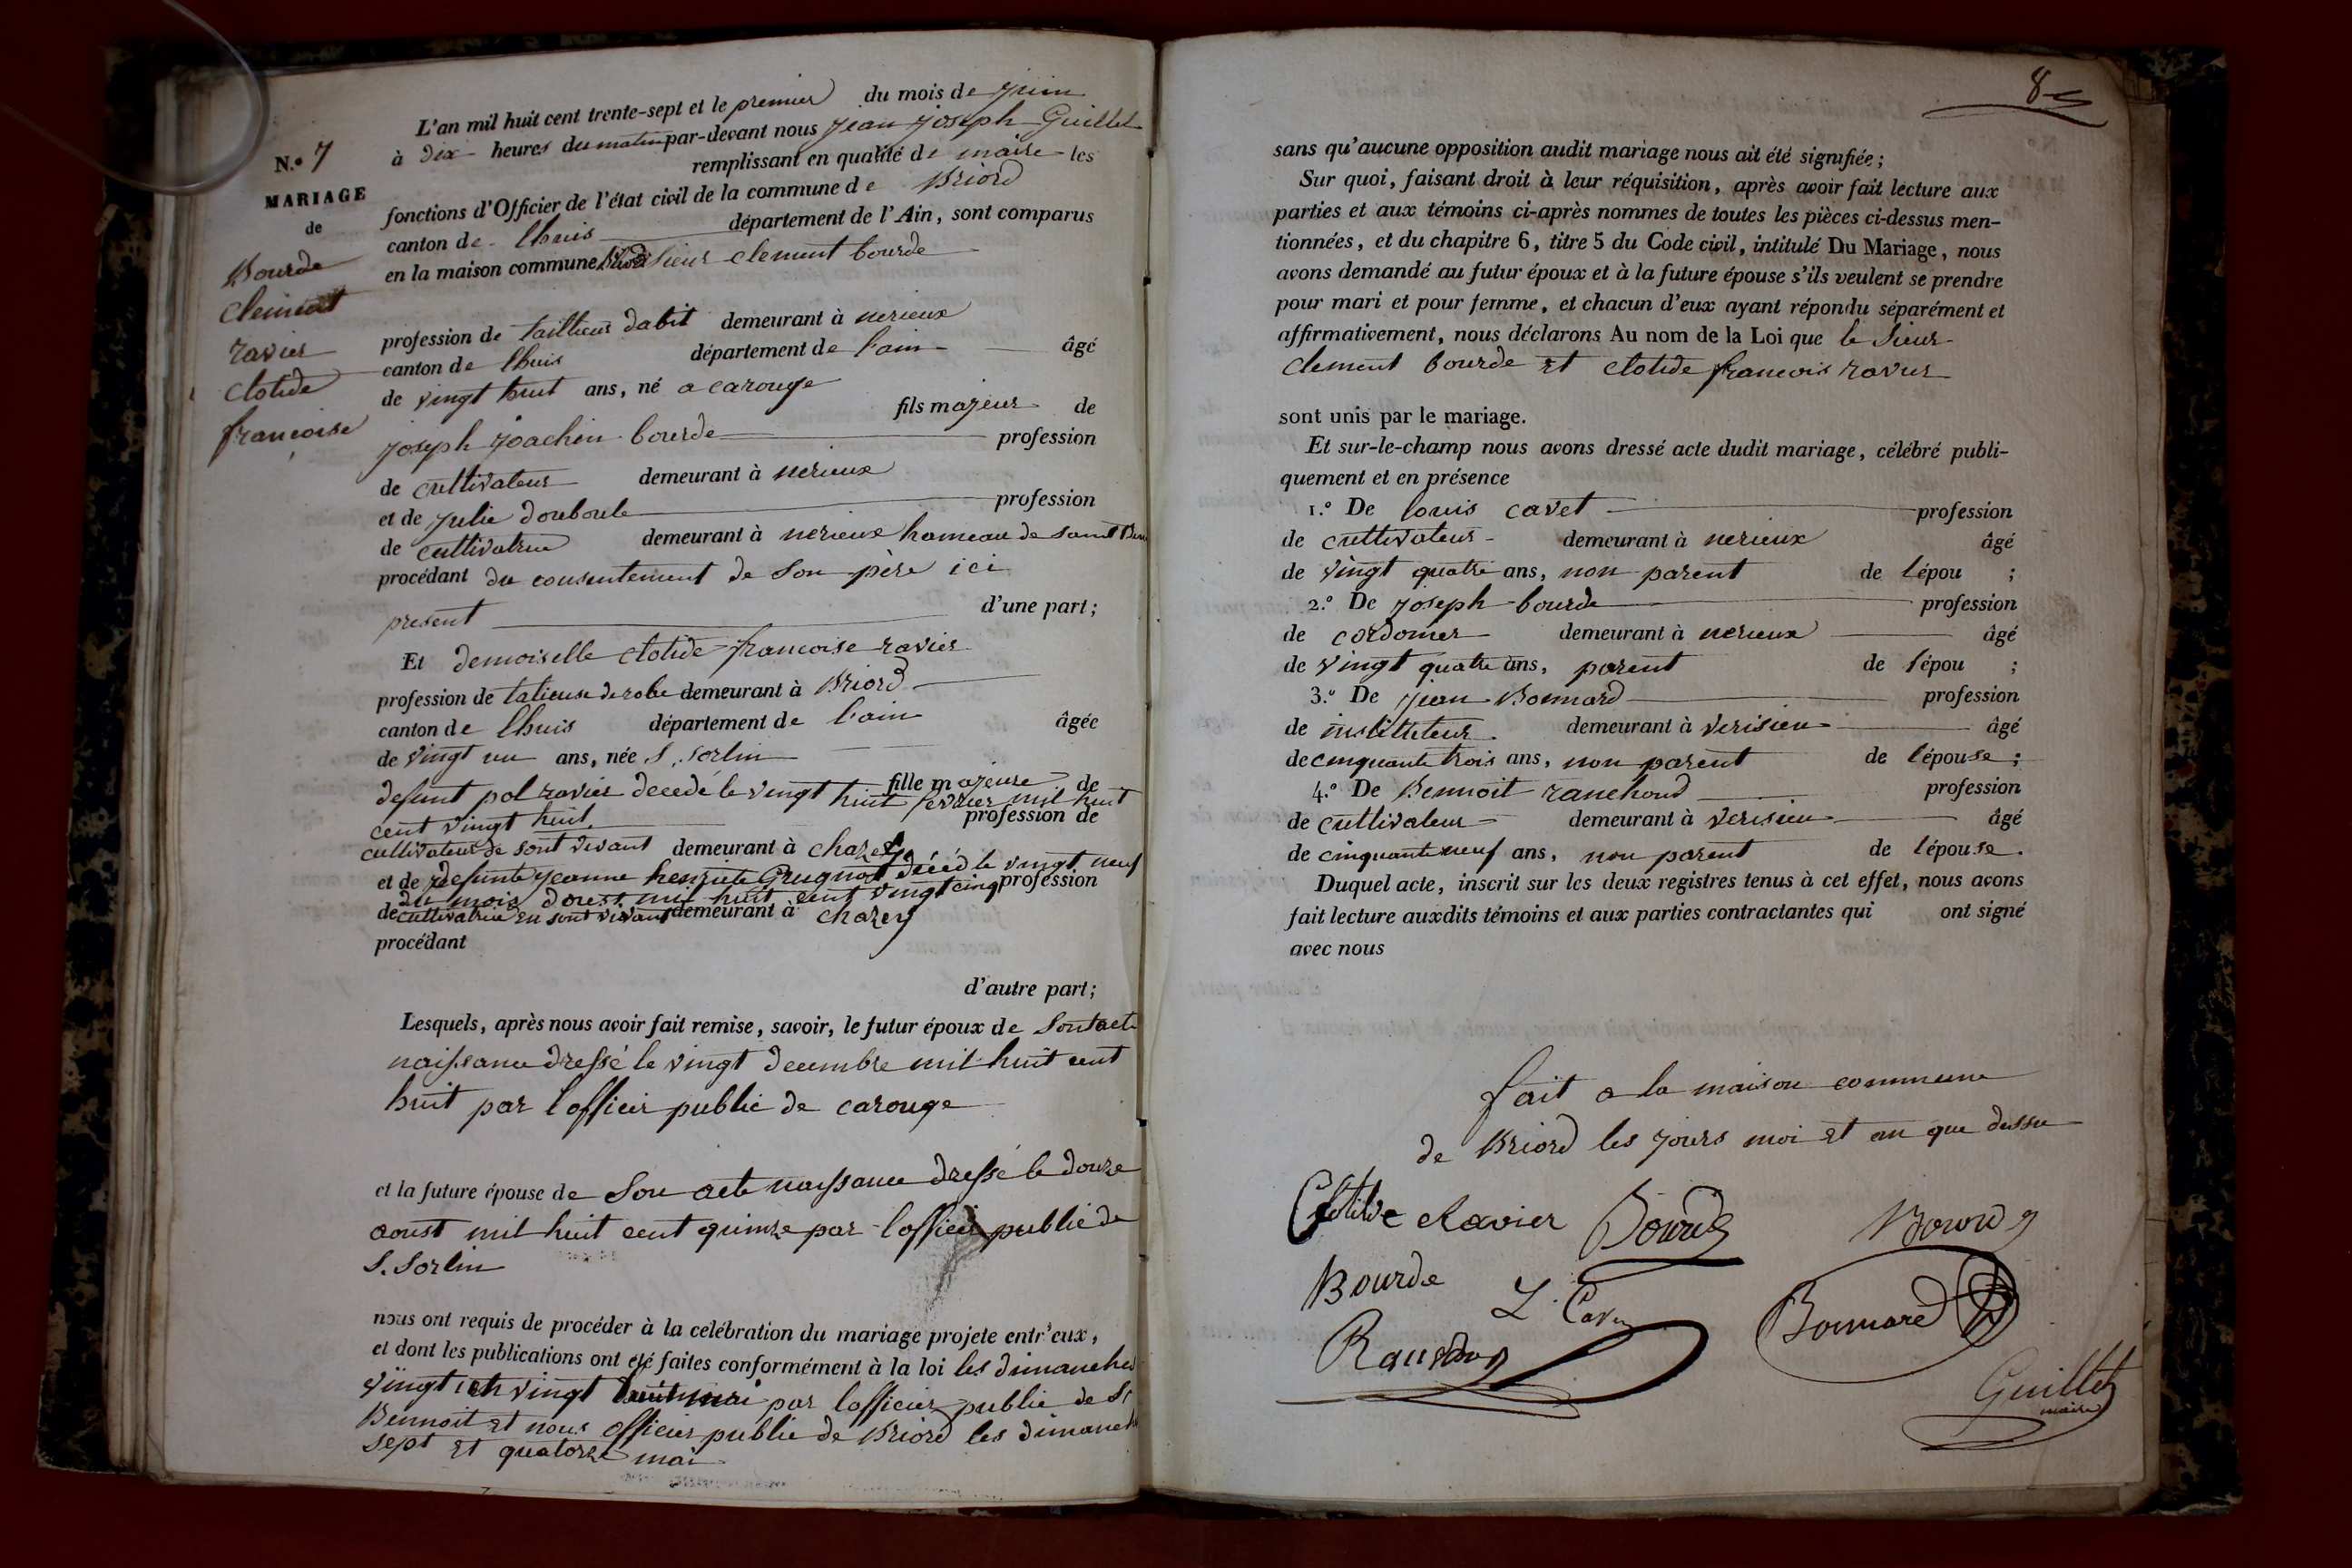 L'an mil huit cent trente-sept et le premier du mois de juin
N.º 7
à dix heures du matin par-devant nous jean joseph Guillet
remplissant en qualité de maire les
MARIAGE
fonctions d'Officier de l'état civil de la commune de Briord
de
canton de lhuis département de l'Ain, sont comparus
Bourde
en la maison commune Sieur clement bourde
clement
ravier
profession de tailleur dabit demeurant à nerieux
canton de lhuis département de l'ain âgé
clotide
de vingt huit ans, né a carouge
francoise
fils majeur de
joseph joachim bourde profession
de cultivateur demeurant à nerieux
et de julie douboule profession
de cultivatrice demeurant à nerieux hameau de saint Ben
procédant du consentement de son père ici
present d'une part;
Et demoiselle clotide francoise ravier
profession de talieuse de robe demeurant à Briord
canton de lhuis département de l'ain âgée
de vingt un ans, née S. Sorlin
fille majeure de
defunt pol ravier decedé le vingt huit fevrier mil huit
cent vingt huit profession de
cultivateur de sont vivant demeurant à chazey
et de defunte jeanne henriete Grugnot décéd le vingt neuf
du mois doust mil huit cent vingt cinq profession
de cultivatrice en sont vivant demeurant à chazey
procédant
d'autre part;
Lesquels, après nous avoir fait remise, savoir, le futur époux de sont acte
naissance dressé le vingt decembre mil huit cent
huit par l officier public de carouge
et la future épouse de Son acte naissance dressé le douze
aoust mil huit cent quinze par l officier public de
S. Sorlin
nous ont requis de procéder à la celébration du mariage projete entr'eux,
et dont les publications ont été faites conformément à la loi les dimanches
vingt un vingt huit mai par lofficier public de St
Bennoit et nous officier public de Briord les dimanch
sept et quatorze mai
8
sans qu'aucune opposition audit mariage nous ait été signifiée;
Sur quoi, faisant droit à leur réquisition, après avoir fait lecture aux
parties et aux témoins ci-après nommes de toutes les pièces ci-dessus men-
tionnées, et du chapitre 6, titre 5 du Code civil, intitulé Du Mariage, nous
avons demandé au futur époux et à la future épouse s'ils veulent se prendre
pour mari et pour femme, et chacun d'eux ayant répondu séparément et
affirmativement, nous déclarons Au nom de la Loi que le Sieur
clement bourde et clotide francois ravier
sont unis par le mariage.
Et sur-le-champ nous avons dressé acte dudit mariage, célébré publi-
quement et en présence
1.º De louis cavet profession
de cultivateur demeurant à nerieux âgé
de vingt quatre ans, non parent de lépou ;
2.º De joseph bourde profession
de cordonier demeurant à nerieux âgé
de vingt quatre ans, parent de lépou ;
3.º De jean Bonnard profession
de institeteur demeurant à verisieu âgé
de cinquante trois ans, non parent de lépouse ;
4.º De Bennoit ranchoud profession
de cultivateur demeurant à verisieu âgé
de cinquante neuf ans, non parent de lépouse.
Duquel acte, inscrit sur les deux registres tenus à cet effet, nous avons
fait lecture auxdits témoins et aux parties contractantes qui ont signé
avec nous
fait a la maison commune
de Briord les jours moi et an que dessu
Clotilde Ravier Bourde Bourde
Bourde L. Cavet Bonnard
Guillet
maire